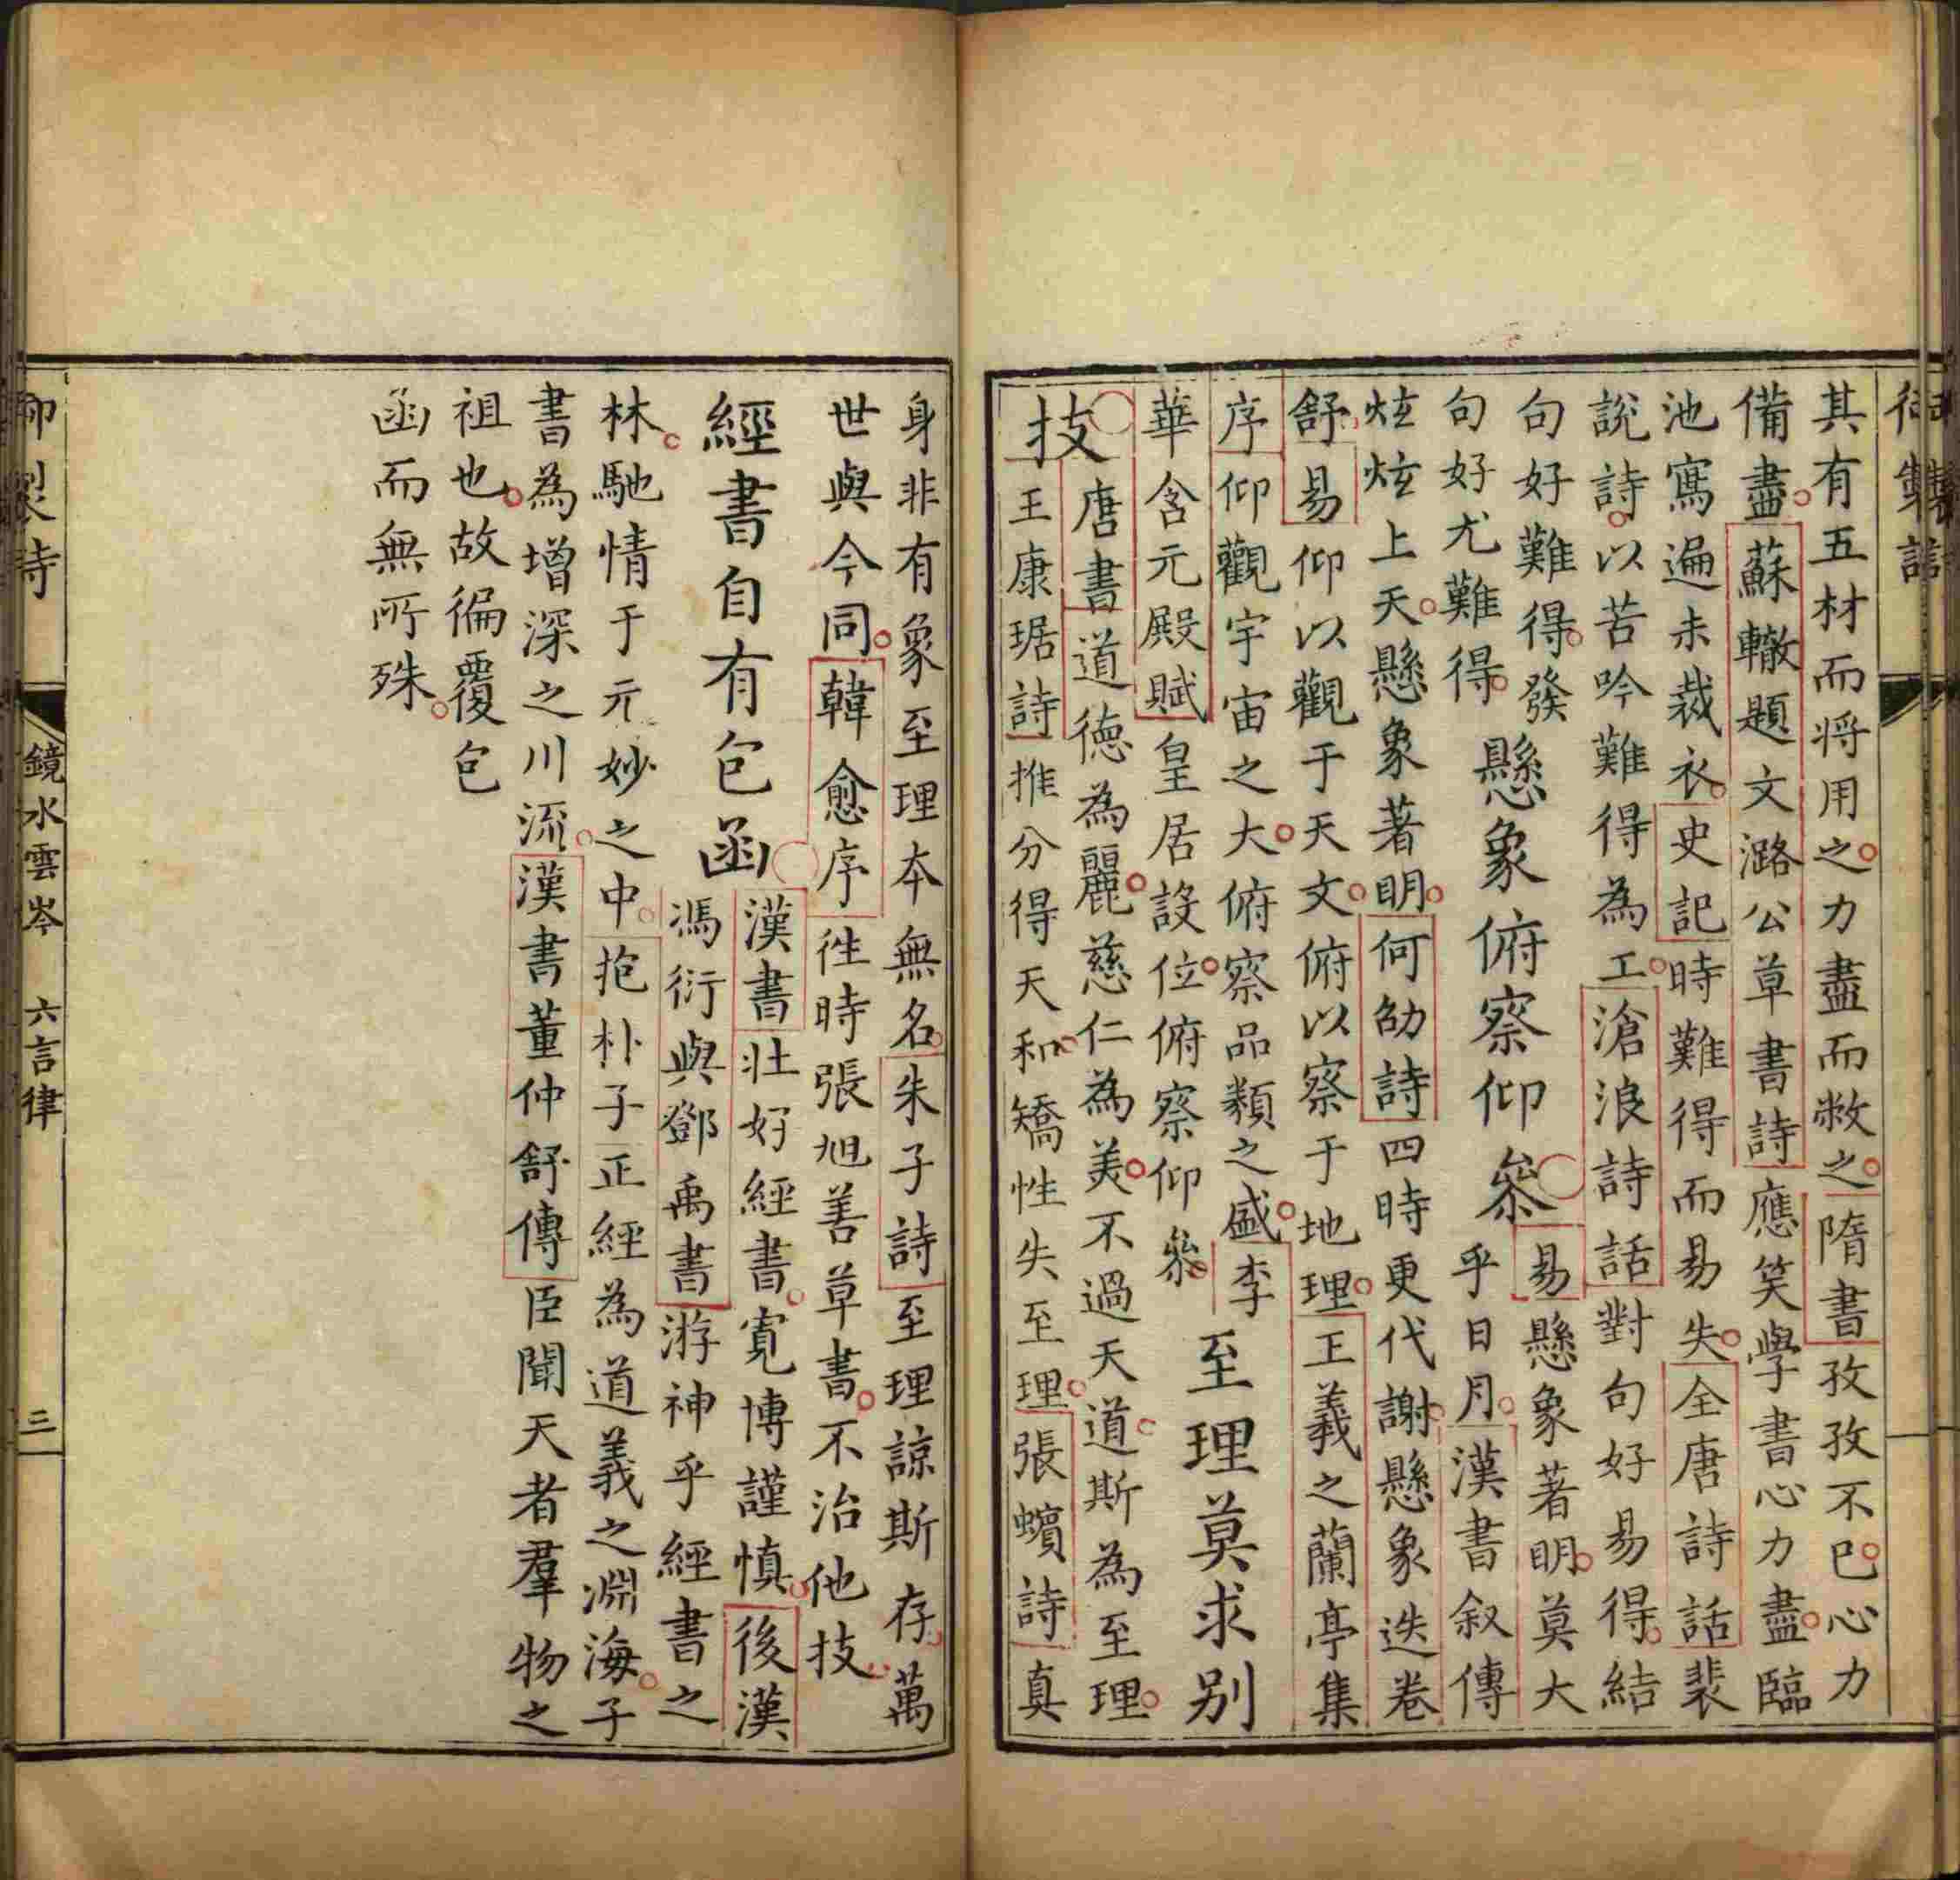 御製詩
其有五材而将用之力盡而敝之隋書孜孜不已心力
備盡蘇轍題文潞公草書詩應笑學書心力盡臨
池寫遍未裁衣史記時難得而易失全唐詩話裴
說詩以苦吟難得為工滄浪詩話對句好易得結
句好難得發
句好尤難得
懸象俯察仰叅
易懸象著明莫大
乎日月漢書叙傳
炫炫上天懸象著明何劭詩四時更代謝懸象迭卷
舒易仰以觀于天文俯以察于地理王羲之蘭亭集
序仰觀宇宙之大俯察品類之盛李
華含元殿賦皇居設位俯察仰叅
至理莫求别
技
唐書道德為麗慈仁為美不過天道斯為至理
王康琚詩推分得天和矯性失至理張蠙詩真
身非有象至理本無名朱子詩至理諒斯存萬
世與今同韓愈序往時張旭善草書不治他技
經書自有包函
漢書壯好經書寬博謹慎後漢
馮衍與鄧禹書游神乎經書之
林馳情于元妙之中抱朴子正經為道義之淵海子
書為增深之川流漢書董仲舒傳臣聞天者羣物之
祖也故徧覆包
函而無所殊
御製詩 鏡水雲岑 六言律 三